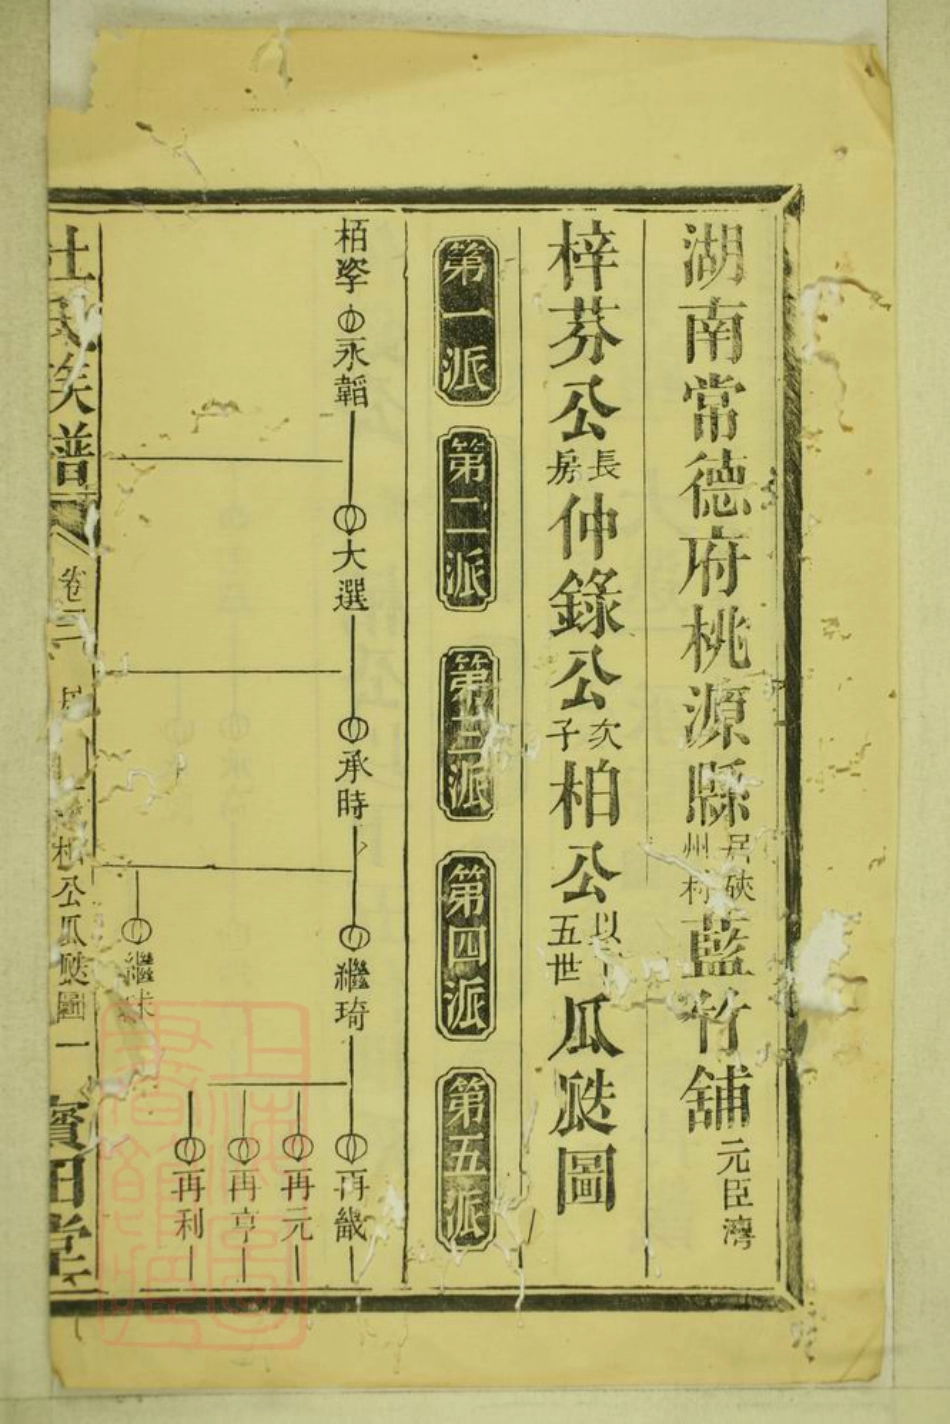 湖南常德府桃源縣居硤州村藍竹舖元臣灣
梓芬公長房仲錄公次子柏公以下五世瓜瓞圖
第一派 第二派 第三派 第四派 第五派
栢㧘永韜 大選 承時 繼琦 再畿
再元
再亨
再利
繼
杜氏族譜 卷二 柏公瓜瓞圖 一 寶田堂